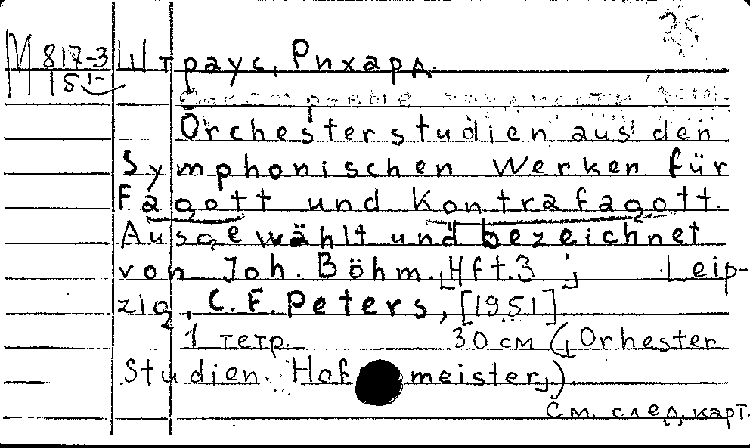 25
М 817-3
151-
Штраус, Рихард.
Orchesterstudien aus den
Symphonischen Werken für
Fagott und Kontrafagott.
Ausgewählt und bezeichnet
von Joh. Böhm. [Hft. 3] Leip-
zig, C. F. Peters, [1951]
1 тетр. 30 см ([Orhester
Studien. Hofmeister])
См. след. карт.